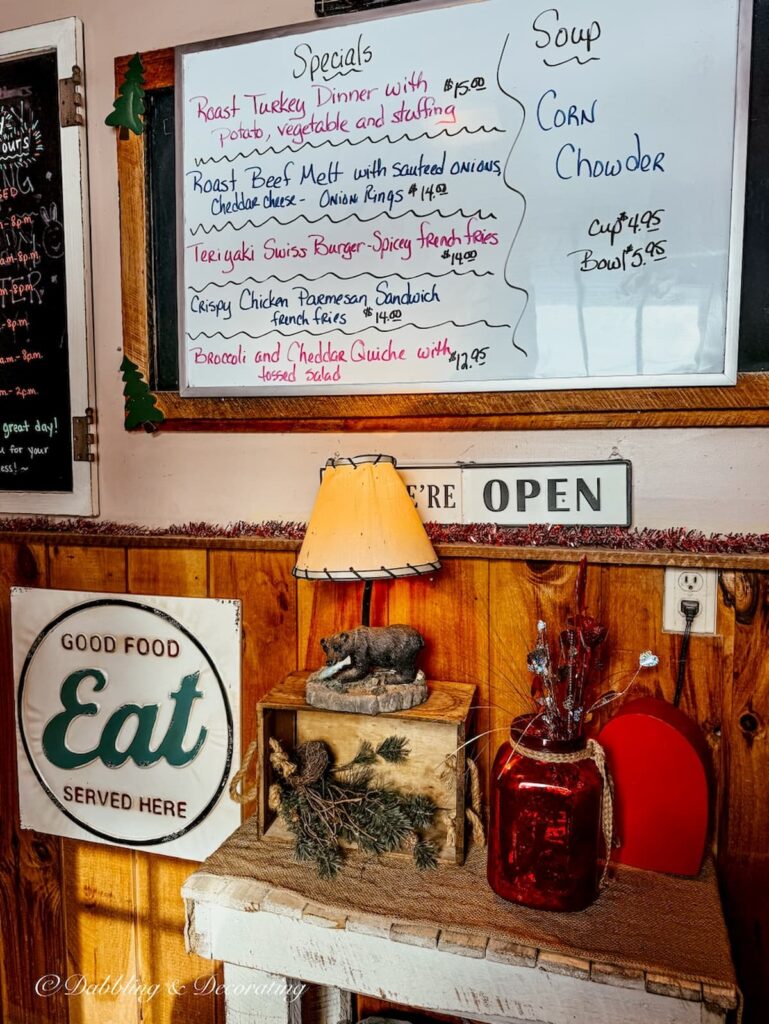 Specials
Roast Turkey Dinner with $15.00
potato, vegetable and stuffing
Roast Beef Melt with sauteed onions,
Cheddar cheese - Onion Rings $14.00
Teriyaki Swiss Burger - Spicy french fries
$14.00
Crispy Chicken Parmesan Sandwich
french fries $14.00
Broccoli and Cheddar Quiche with $12.95
tossed salad
Soup
Corn
Chowder
Cup $4.95
Bowl $5.95
great day!
for your
'RE OPEN
GOOD FOOD
Eat
SERVED HERE
© Dabbling & Decorating